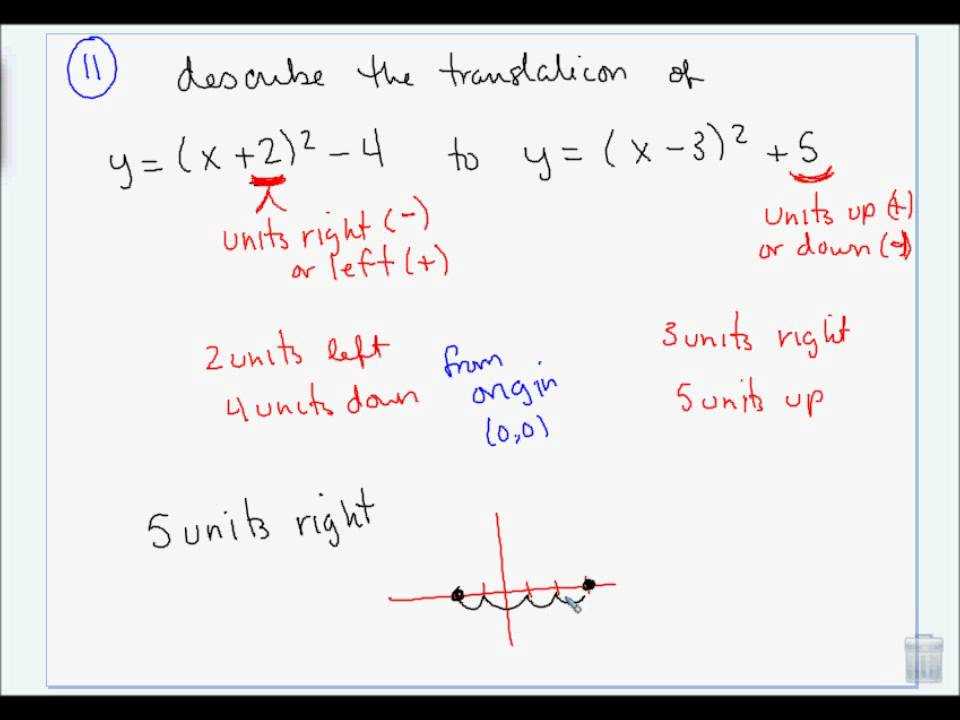 11 describe the translation of
y = (x + 2)² - 4 to y = (x - 3)² + 5
units right (-)
or left (+)
units up (+)
or down (-)
2 units left
4 units down
from
origin
(0,0)
3 units right
5 units up
5 units right